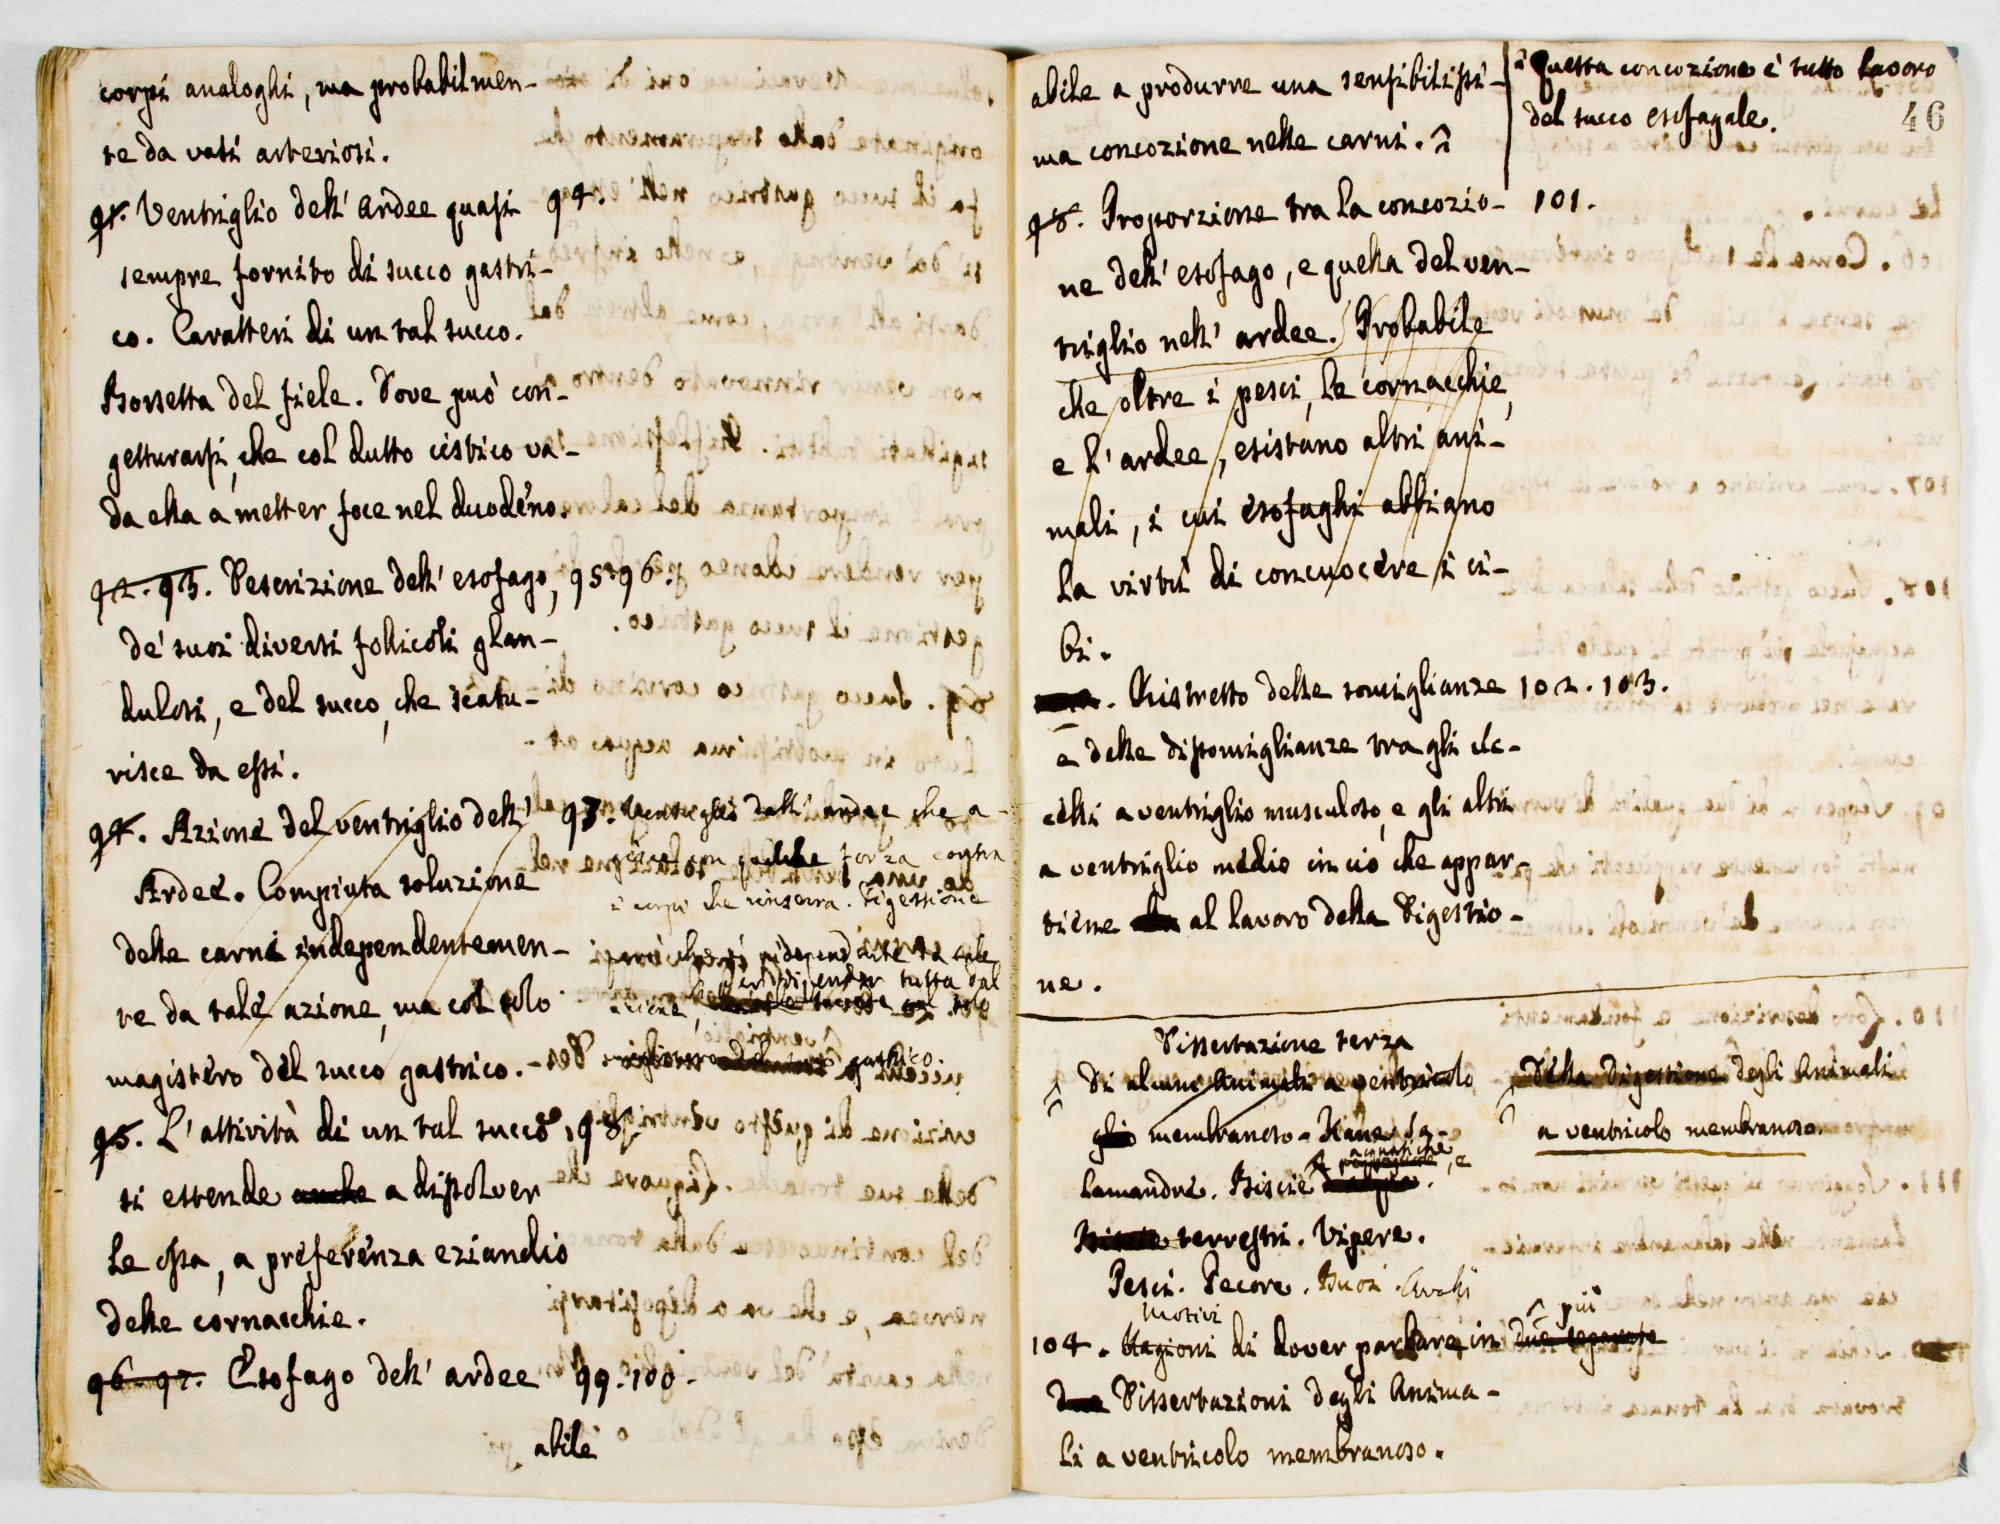 corpi analoghi, ma probabilmen-
te da vasi arteriosi.
91. Ventriglio dell' ardee quasi 94.
sempre fornito di succo gastri-
co. Caratteri di un tal succo.
Borsetta del fiele. Dove può con-
getturarsi, che col dutto cistico va-
da ella a metter foce nel duodeno.
92. 93. Descrizione dell' esofago, 95. 96.
de' suoi diversi follicoli glan-
dulosi, e del succo, che scatu-
risce da essi.
94. Azione del ventriglio dell'
Ardee. Compiuta soluzione
delle carni independentemen-
te da tale azione, ma col solo
magistero del succo gastrico.
97. Ventriglio dell' ardee che a-
gisce con qualche forza contra
i corpi che rinserra. Digestione
tutta dal
gastrico.
95. L'attività di un tal succo 98.
si estende anche a dissolver
le ossa, a preferenza eziandio
delle cornacchie.
96. 97. Esofago dell' ardee 99. 100.
abile
abile a produrre una sensibilissi-
ma concozione nelle carni.
Questa concozione è tutto lavoro
del succo esofagale.
46
98. Proporzione tra la concozio- 101.
ne dell' esofago, e quella del ven-
triglio nell' ardee. Probabile
che oltre i pesci, le cornacchie,
e l' ardee, esistano altri ani-
mali, i cui esofaghi abbiano
la virtù di concuocere i ci-
bi.
Ristretto delle somiglianze 102. 103.
e delle dissomiglianze tra gli uc-
celli a ventriglio musculoso, e gli altri
a ventriglio medio in ciò che appar-
tiene al lavoro della Digestio-
ne.
Dissertazione terza
Di alcuni Animali a ventricolo
membranoso - Rane. Sa-
lamandre. Biscie acquatiche, e
terrestri. Vipere.
Pesci. Pecore. Buoi. Cavalli
Della Digestione degli Animali
a ventricolo membranoso
Motivi
104. Ragioni di dover parlare in due separate
più
due Dissertazioni degli Anima-
li a ventricolo membranoso.